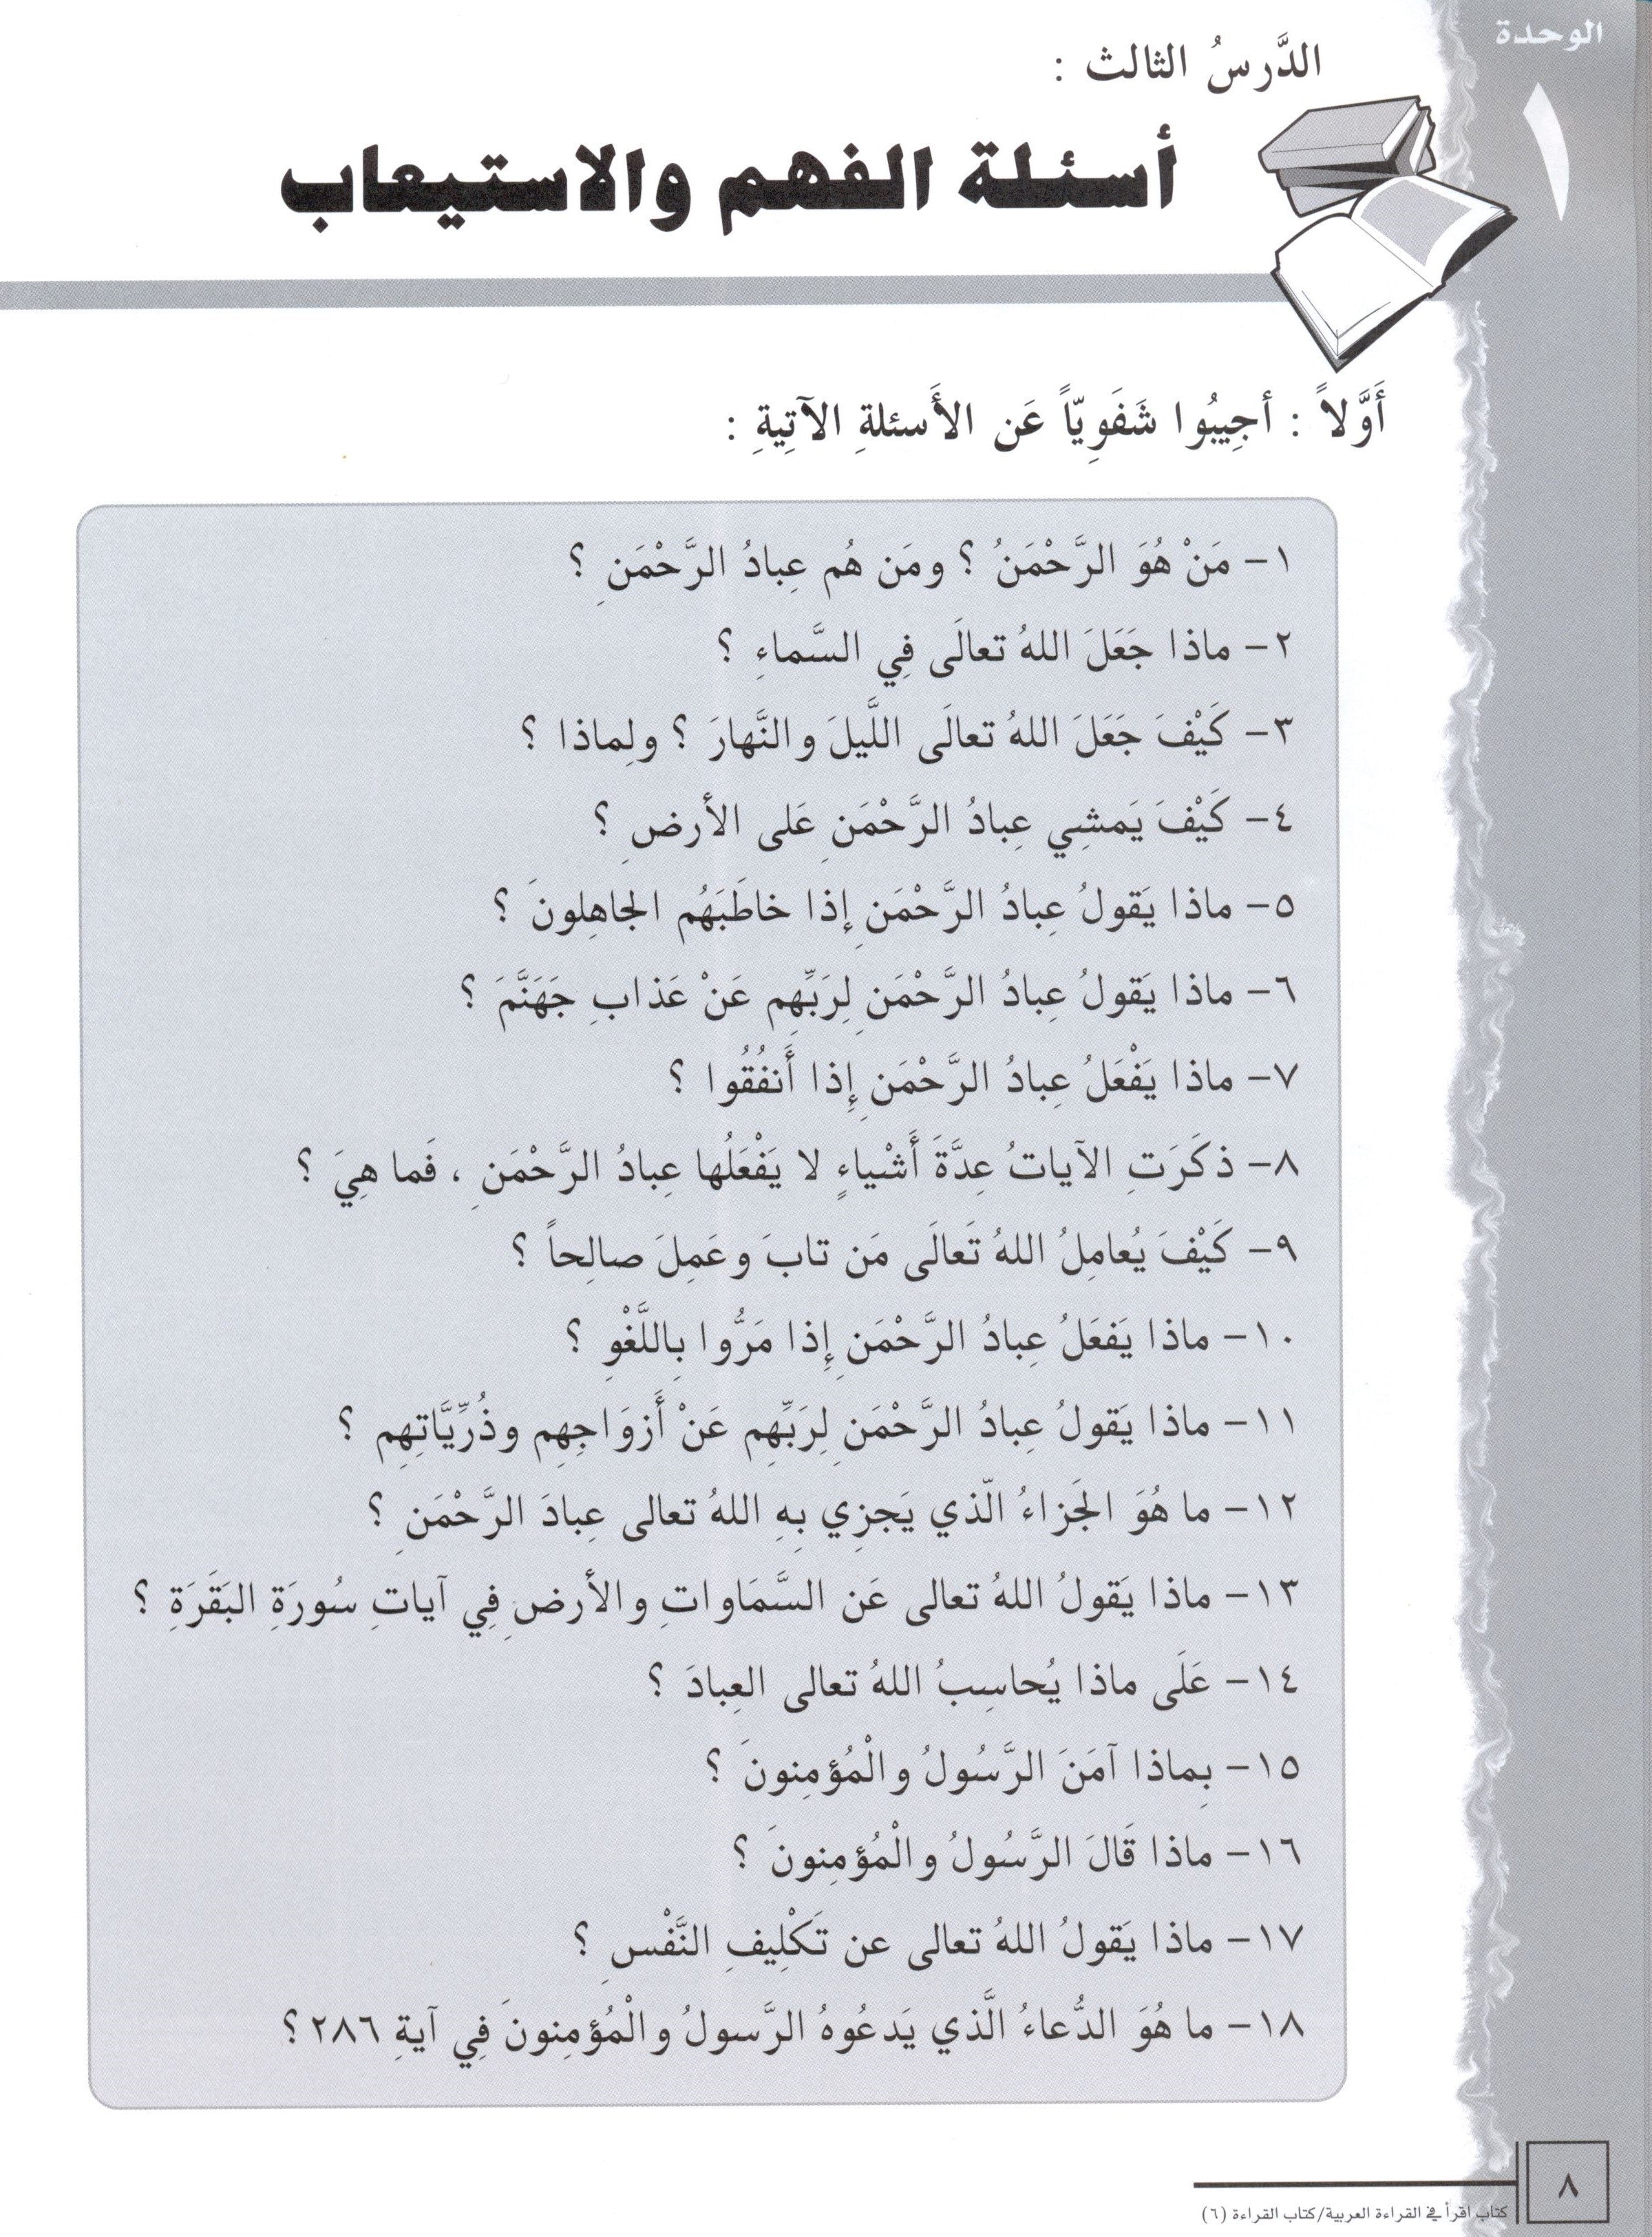 الوحدة
١
الدَّرسُ الثالث :
أسئلة الفهم والاستيعاب
أَوَّلاً : أجِيبُوا شَفَوِيّاً عَن الأَسئلةِ الآتِيةِ :
١- مَنْ هُوَ الرَّحْمَنُ ؟ ومَن هُم عِبادُ الرَّحْمَنِ ؟
٢- ماذا جَعَلَ اللهُ تعالَى فِي السَّماءِ ؟
٣- كَيْفَ جَعَلَ اللهُ تعالَى اللَّيلَ والنَّهارَ ؟ ولِماذا ؟
٤- كَيْفَ يَمشِي عِبادُ الرَّحْمَنِ عَلى الأرضِ ؟
٥- ماذا يَقولُ عِبادُ الرَّحْمَنِ إذا خاطَبَهُم الجاهِلونَ ؟
٦- ماذا يَقولُ عِبادُ الرَّحْمَنِ لِرَبِّهِم عَنْ عَذابِ جَهَنَّمَ ؟
٧- ماذا يَفْعَلُ عِبادُ الرَّحْمَنِ إِذا أَنفُقُوا ؟
٨- ذكَرَتِ الآياتُ عِدَّةَ أَشْياءٍ لا يَفْعَلُها عِبادُ الرَّحْمَنِ ، فَما هِيَ ؟
٩- كَيْفَ يُعامِلُ اللهُ تَعالَى مَن تابَ وعَمِلَ صالِحاً ؟
١٠- ماذا يَفعَلُ عِبادُ الرَّحْمَنِ إِذا مَرُّوا بِاللَّغْوِ ؟
١١- ماذا يَقولُ عِبادُ الرَّحْمَنِ لِرَبِّهِم عَنْ أَزوَاجِهِم وذُرِّيَّاتِهِم ؟
١٢- ما هُوَ الجَزاءُ الّذي يَجزِي بِهِ اللهُ تعالى عِبادَ الرَّحْمَنِ ؟
١٣- ماذا يَقولُ اللهُ تعالى عَن السَّمَاواتِ والأرضِ فِي آياتِ سُورَةِ البَقَرَةِ ؟
١٤- عَلَى ماذا يُحاسِبُ اللهُ تعالى العِبادَ ؟
١٥- بِماذا آمَنَ الرَّسُولُ والْمُؤمِنونَ ؟
١٦- ماذا قَالَ الرَّسُولُ والْمُؤمِنونَ ؟
١٧- ماذا يَقولُ اللهُ تعالى عن تَكْلِيفِ النَّفْسِ ؟
١٨- ما هُوَ الدُّعاءُ الَّذي يَدعُوهُ الرَّسولُ والْمُؤمِنونَ فِي آيةِ ٢٨٦ ؟
٨
كتاب اقرأ في القراءة العربية/كتاب القراءة (٦)